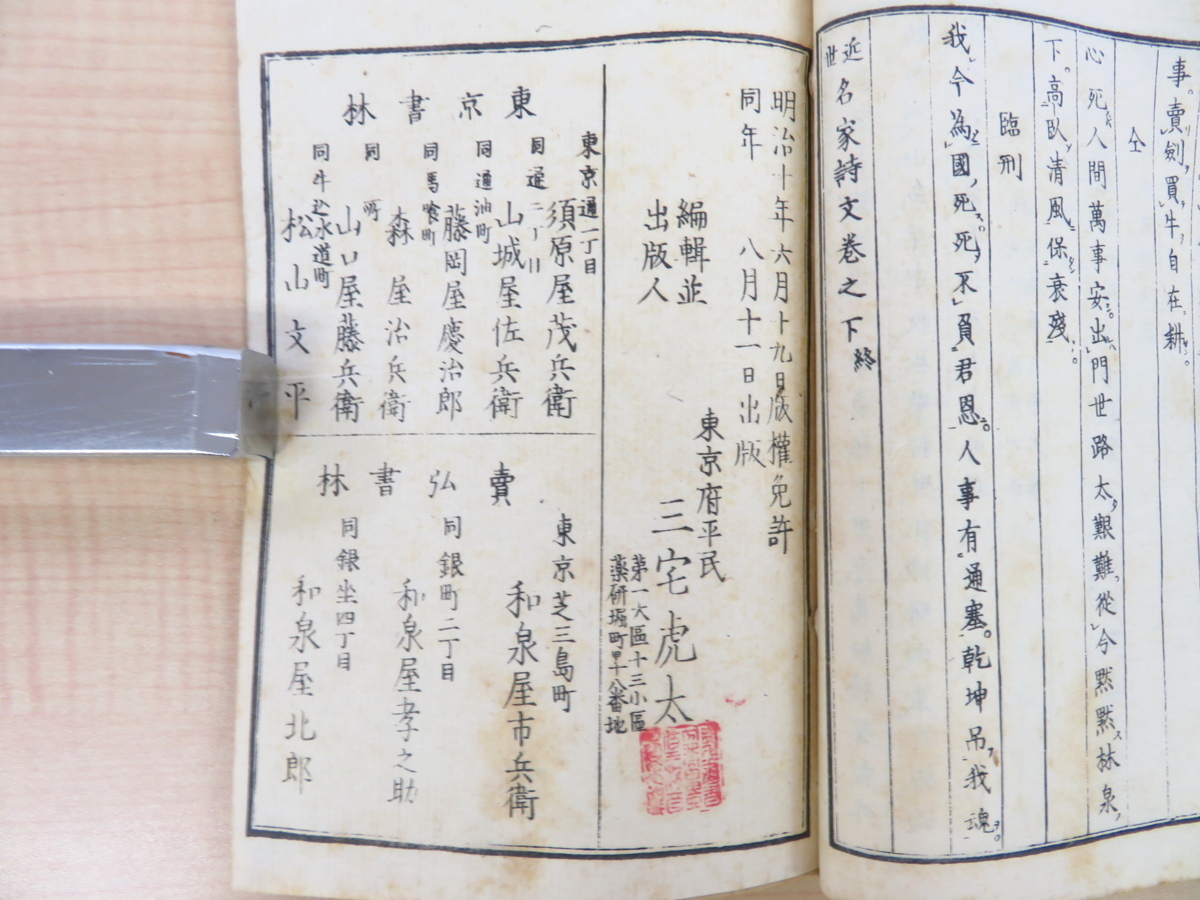 事賣劍買牛自在耕
仝
心死人間萬事安出門世路太艱難從今黙黙林泉
下高臥清風保衰殘
臨刑
我今為國死死不負君恩人事有通塞乾坤吊我魂
近世名家詩文卷之下終
明治十年六月十九日版權免許
同年八月十一日出版
東京府平民
編輯並
出版人
三宅虎太
第一大區十三小區
藥研堀町四十八番地
東京書林
東京通一丁目
須原屋茂兵衛
同通二丁目
山城屋佐兵衛
同通油町
藤岡屋慶治郎
同馬喰町
森屋治兵衛
同町
山口屋藤兵衛
同牛込水道町
松山文平
賣弘書林
東京芝三島町
和泉屋市兵衛
同銀町二丁目
和泉屋孝之助
同銀坐四丁目
和泉屋北郎